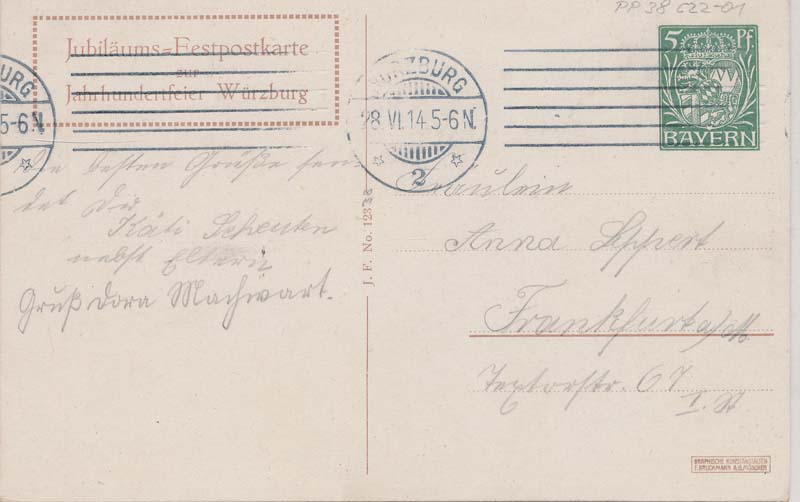 PP 38 C22-01
Jubiläums-Festpostkarte
zur
Jahrhundertfeier Würzburg
WÜRZBURG
28.VI.14.5-6N.
2
5-6N.
5 Pf.
BAYERN
Die besten Grüße sen
det Dir
Käti Scheuten
nebst Eltern
Gruß Dora Machwart.
J. F. No. 123
Fräulein
Anna
Frankfurt a/M.
Textorstr. 67
I. St
GRAPHISCHE KUNSTANSTALTEN
F. BRUCKMANN A.G. MÜNCHEN